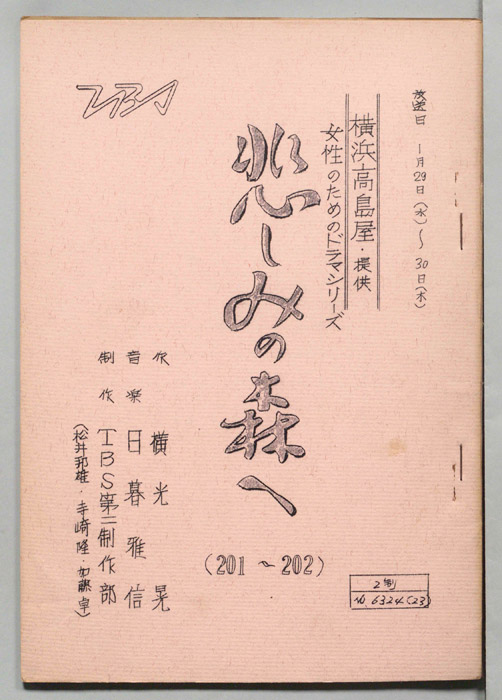 放送日 1月29日(水)〜30日(木)
横浜高島屋・提供
女性のためのドラマシリーズ
悲しみの森へ
(201~202)
作 横光晃
音楽 日暮雅信
制作 TBS第二制作部
(松井邦雄・寺崎隆・加藤卓)
TBS
2制
No 6324(23)